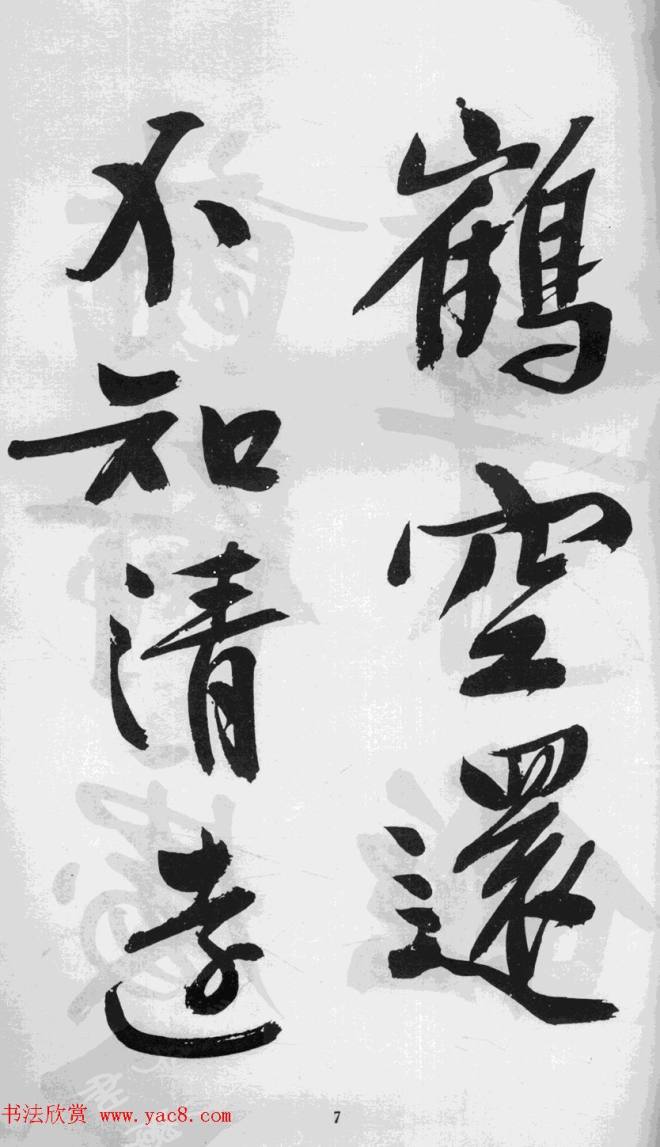 鶴空還
不知清遠
書法欣赏 www.yac8.com
7